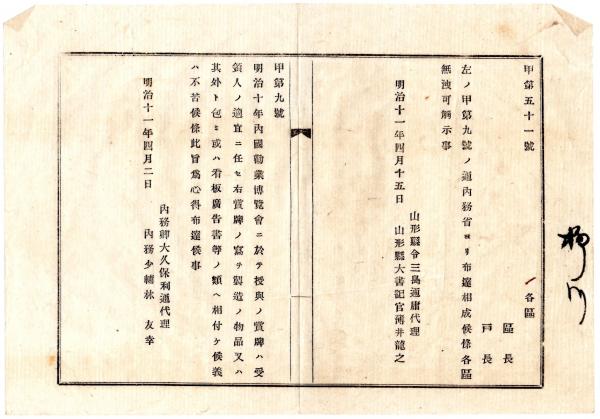 甲第五十一號
各區
區長
戸長
左ノ甲第九號ノ通內務省ヨリ布達相成候條各區
無洩可觸示事
山形縣令三島通庸代理
明治十一年四月十五日　山形縣大書記官薄井龍之
甲第九號
明治十年內國勸業博覽會ニ於テ授與ノ賞牌ハ受
領人ノ適宜ニ任セ右賞牌ノ寫ヲ製造ノ物品又ハ
其外ト包ミ或ハ看板廣告書等ノ類ヘ相付ケ候義
ハ不苦候條此旨爲心得布達候事
內務卿大久保利通代理
明治十一年四月二日　內務少輔林　友幸